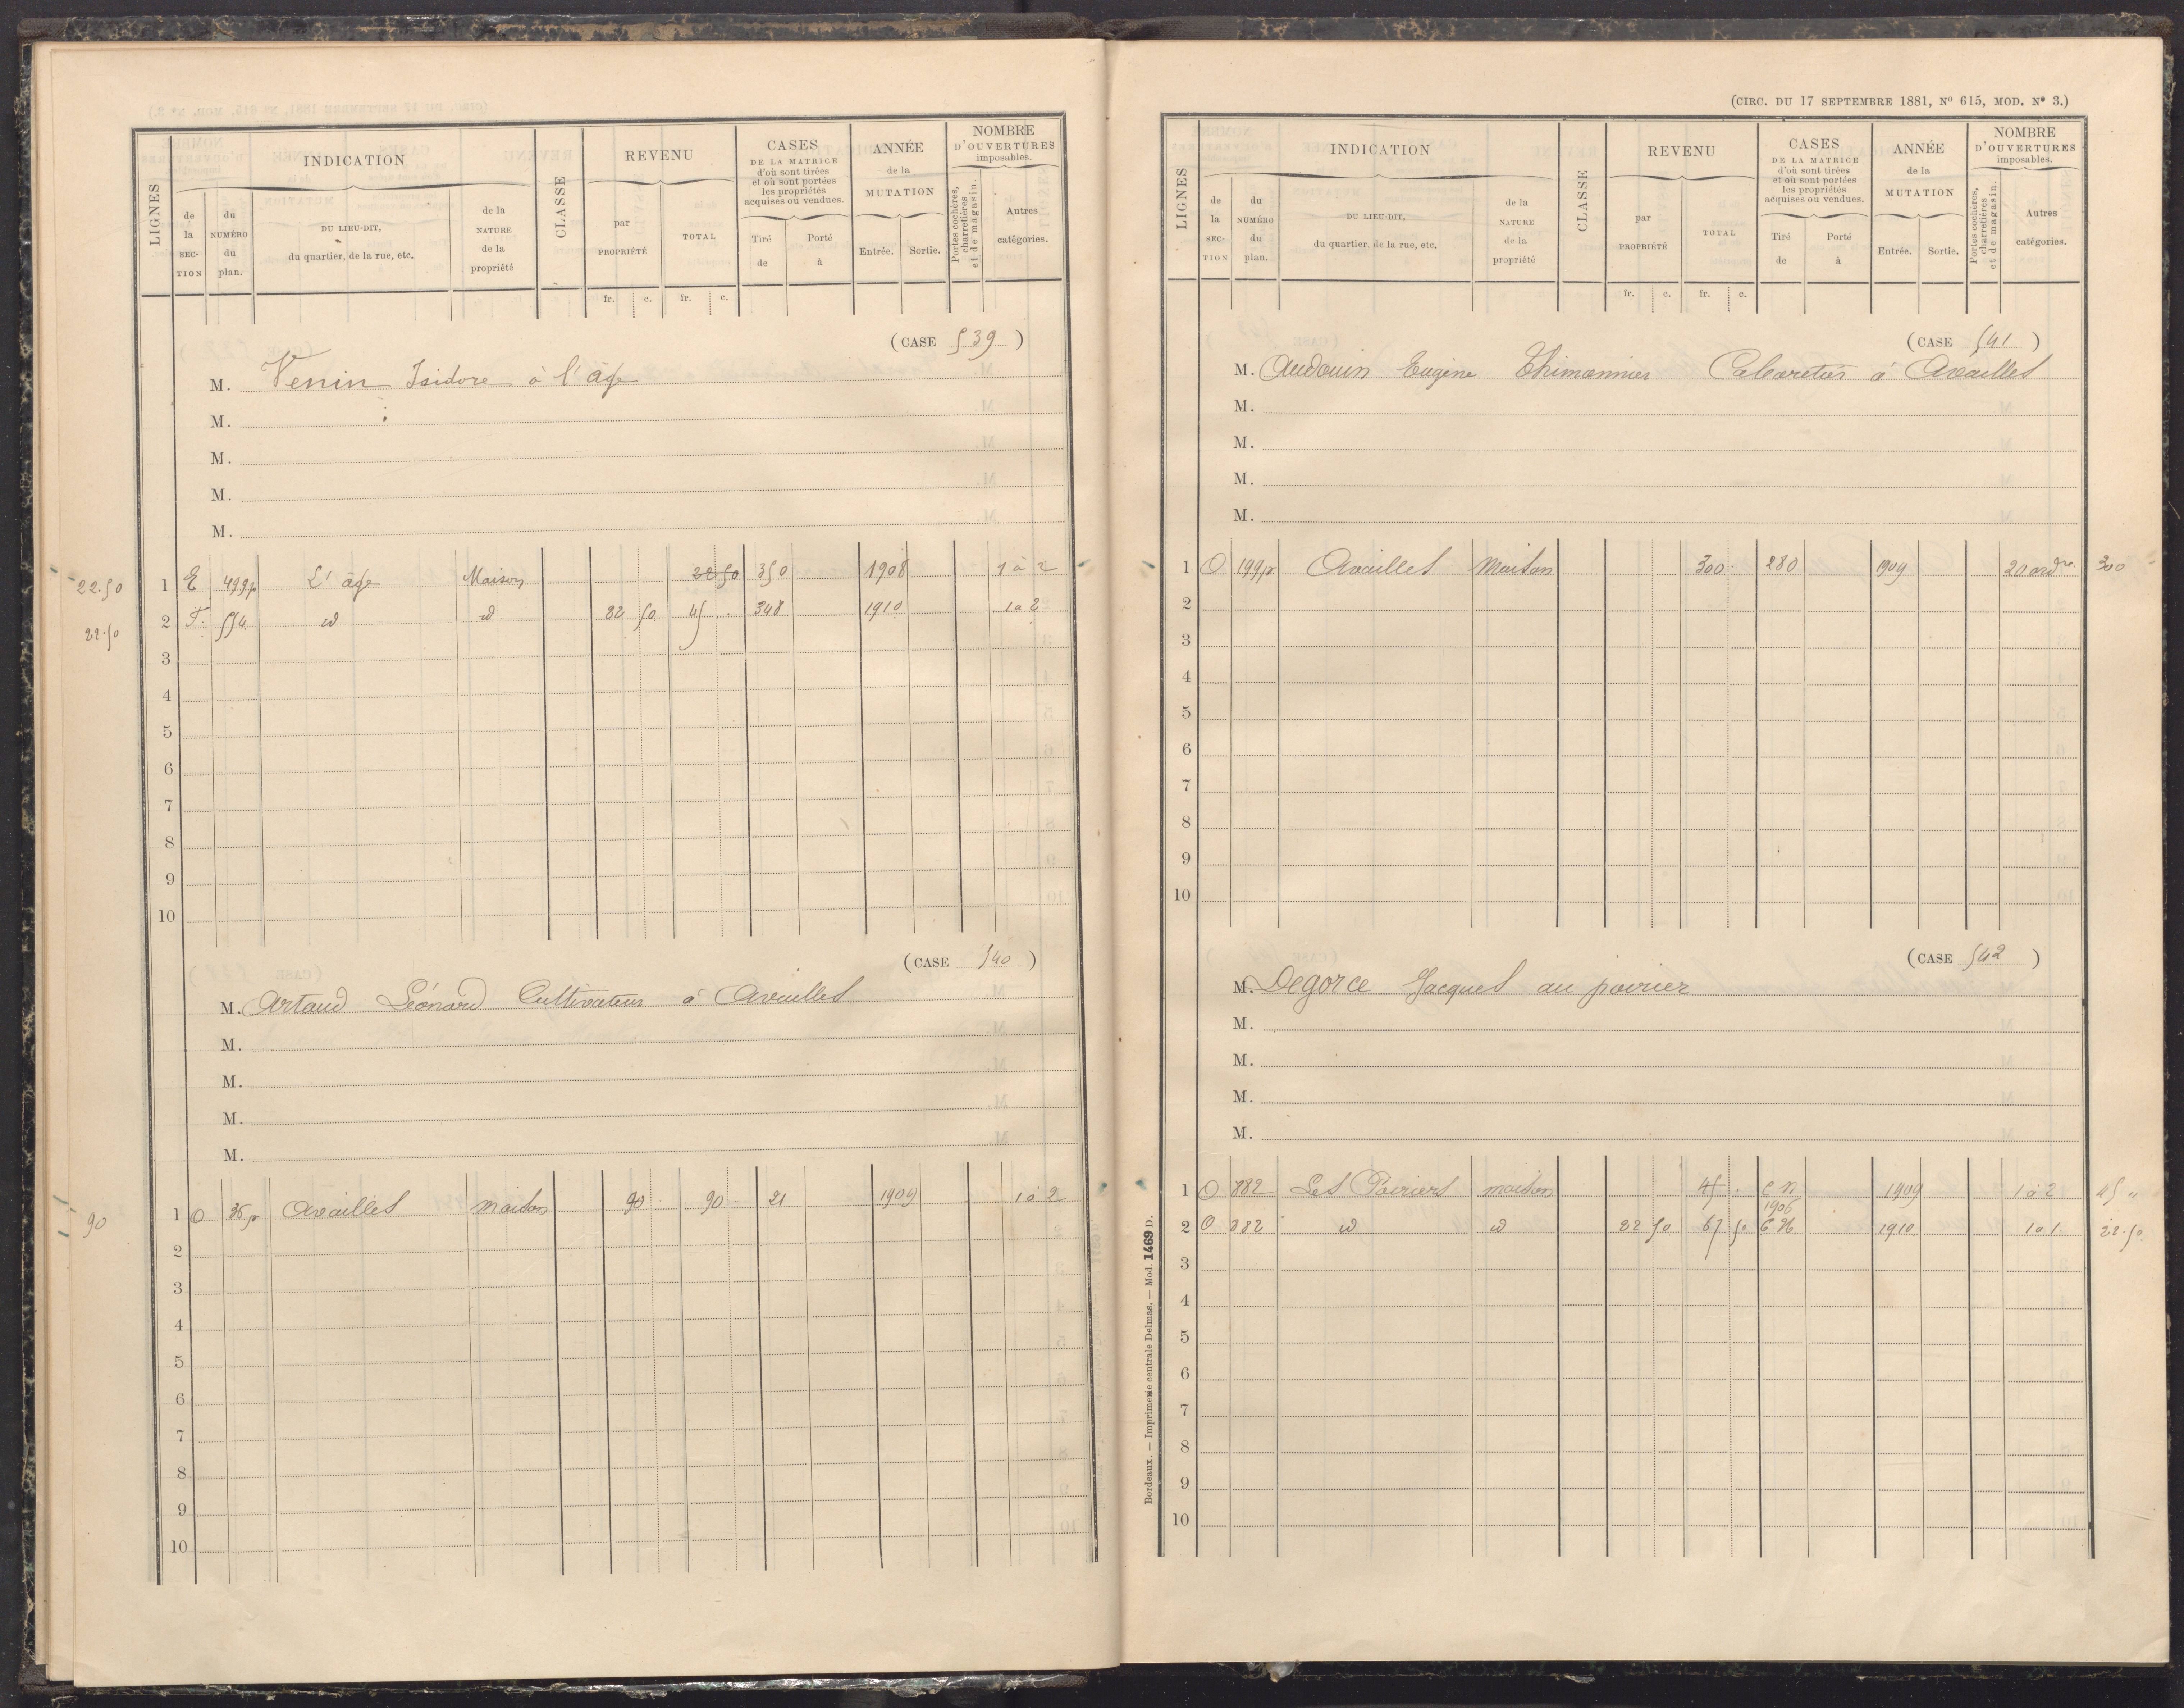 LIGNES
INDICATION
de la SECTION
du NUMÉRO du plan.
DU LIEU-DIT, du quartier, de la rue, etc.
de la NATURE de la propriété
CLASSE
REVENU
par PROPRIÉTÉ
TOTAL
fr. c. fr. c.
CASES
DE LA MATRICE
d'où sont tirées
et où sont portées
les propriétés
acquises ou vendues.
Tiré de
Porté à
ANNÉE
de la
MUTATION
Entrée. Sortie.
NOMBRE
D'OUVERTURES
imposables.
Portes cochères, charretières et de magasin.
Autres catégories.
(CASE 539)
M. Venin Isidore à l'âge
M.
M.
M.
M.
22.50 1 E 499p L'âge Maison 22 50 350 1908 1 à 2
22.50 2 F. 554 id id 22 50 45 . 348 1910 1 a 2
3
4
5
6
7
8
9
10
(CASE 540)
M. Artaud Léonard Cultivateur à Availles
M.
M.
M.
M.
90 1 O 36p Availles maison 90 90 21 1909 1 à 2
2
3
4
5
6
7
8
9
10
(CIRC. DU 17 SEPTEMBRE 1881, Nº 615, MOD. Nº 3.)
LIGNES
INDICATION
de la SECTION
du NUMÉRO du plan.
DU LIEU-DIT, du quartier, de la rue, etc.
de la NATURE de la propriété
CLASSE
REVENU
par PROPRIÉTÉ
TOTAL
fr. c. fr. c.
CASES
DE LA MATRICE
d'où sont tirées
et où sont portées
les propriétés
acquises ou vendues.
Tiré de
Porté à
ANNÉE
de la
MUTATION
Entrée. Sortie.
NOMBRE
D'OUVERTURES
imposables.
Portes cochères, charretières et de magasin.
Autres catégories.
(CASE 541)
M. Audouin Eugène Thimonnier Cabaretier à Availles
M.
M.
M.
M.
1 O 199p Availles Maison 300 . 280 1909 20 ordre 300
2
3
4
5
6
7
8
9
10
(CASE 542)
M. Degorce Jacques au poirier
M.
M.
M.
M.
1 O 882 Les Poiriers maison 45 . C N 1909 1 à 2 45 "
1906
2 O 382 id id 22 50 67 50 C N. 1910 1 a 1. 22.50
3
4
5
6
7
8
9
10
Bordeaux. — Imprimerie centrale Delmas. — Mod. 1469 D.